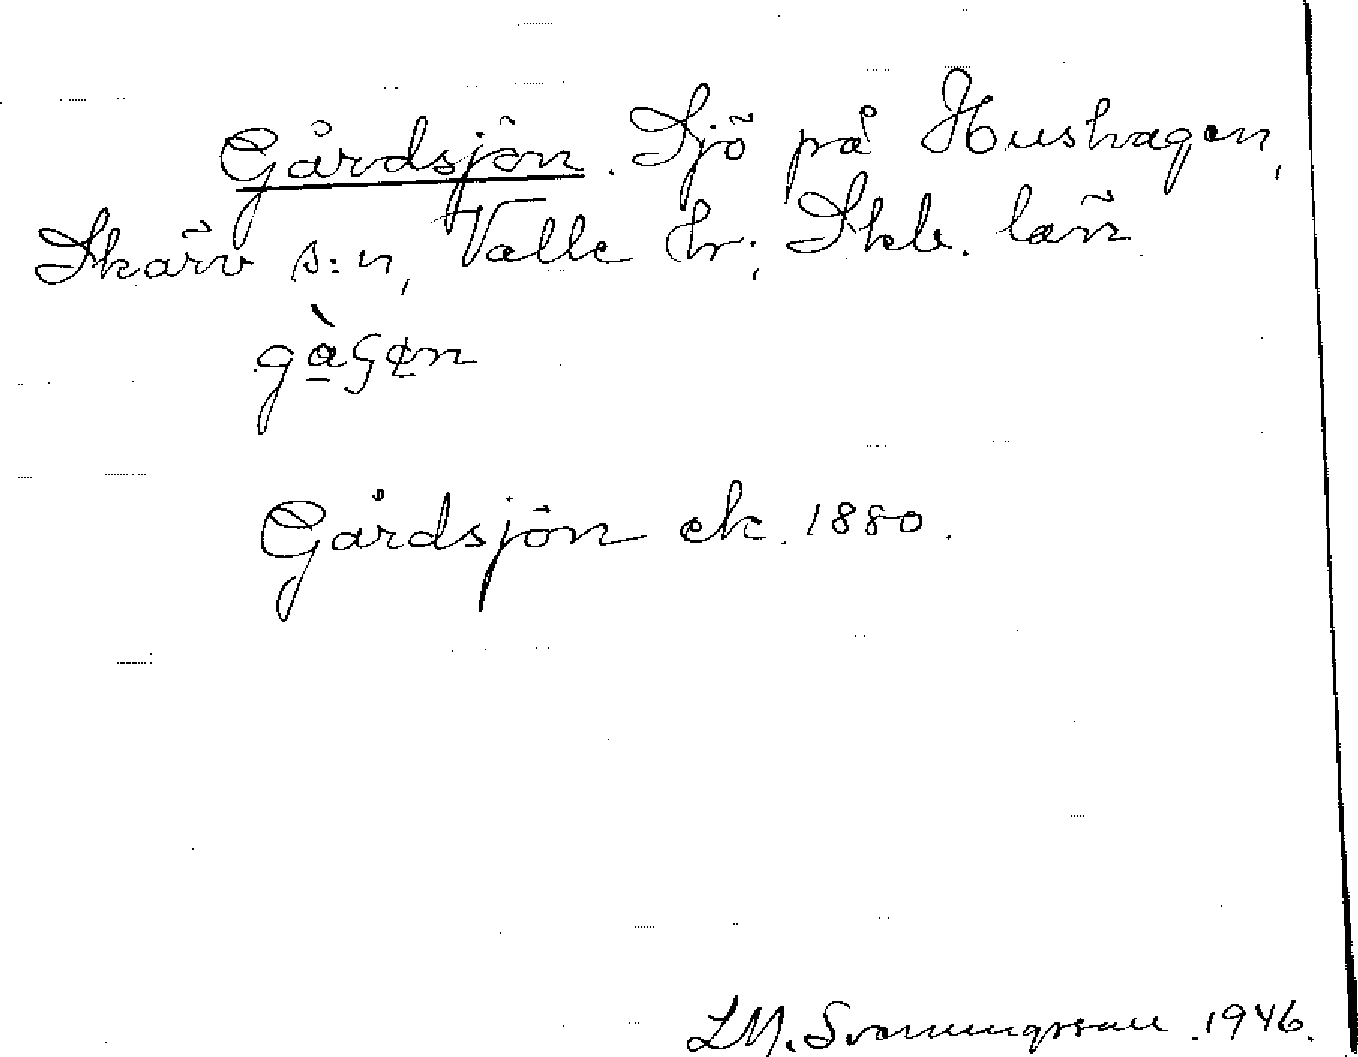 Gårdsjön. Sjö på Hushagen,
Skärv s:n, Valle hr; Skb. län
Gårdsjön ek. 1880.
LM. Svenungsson 1946.